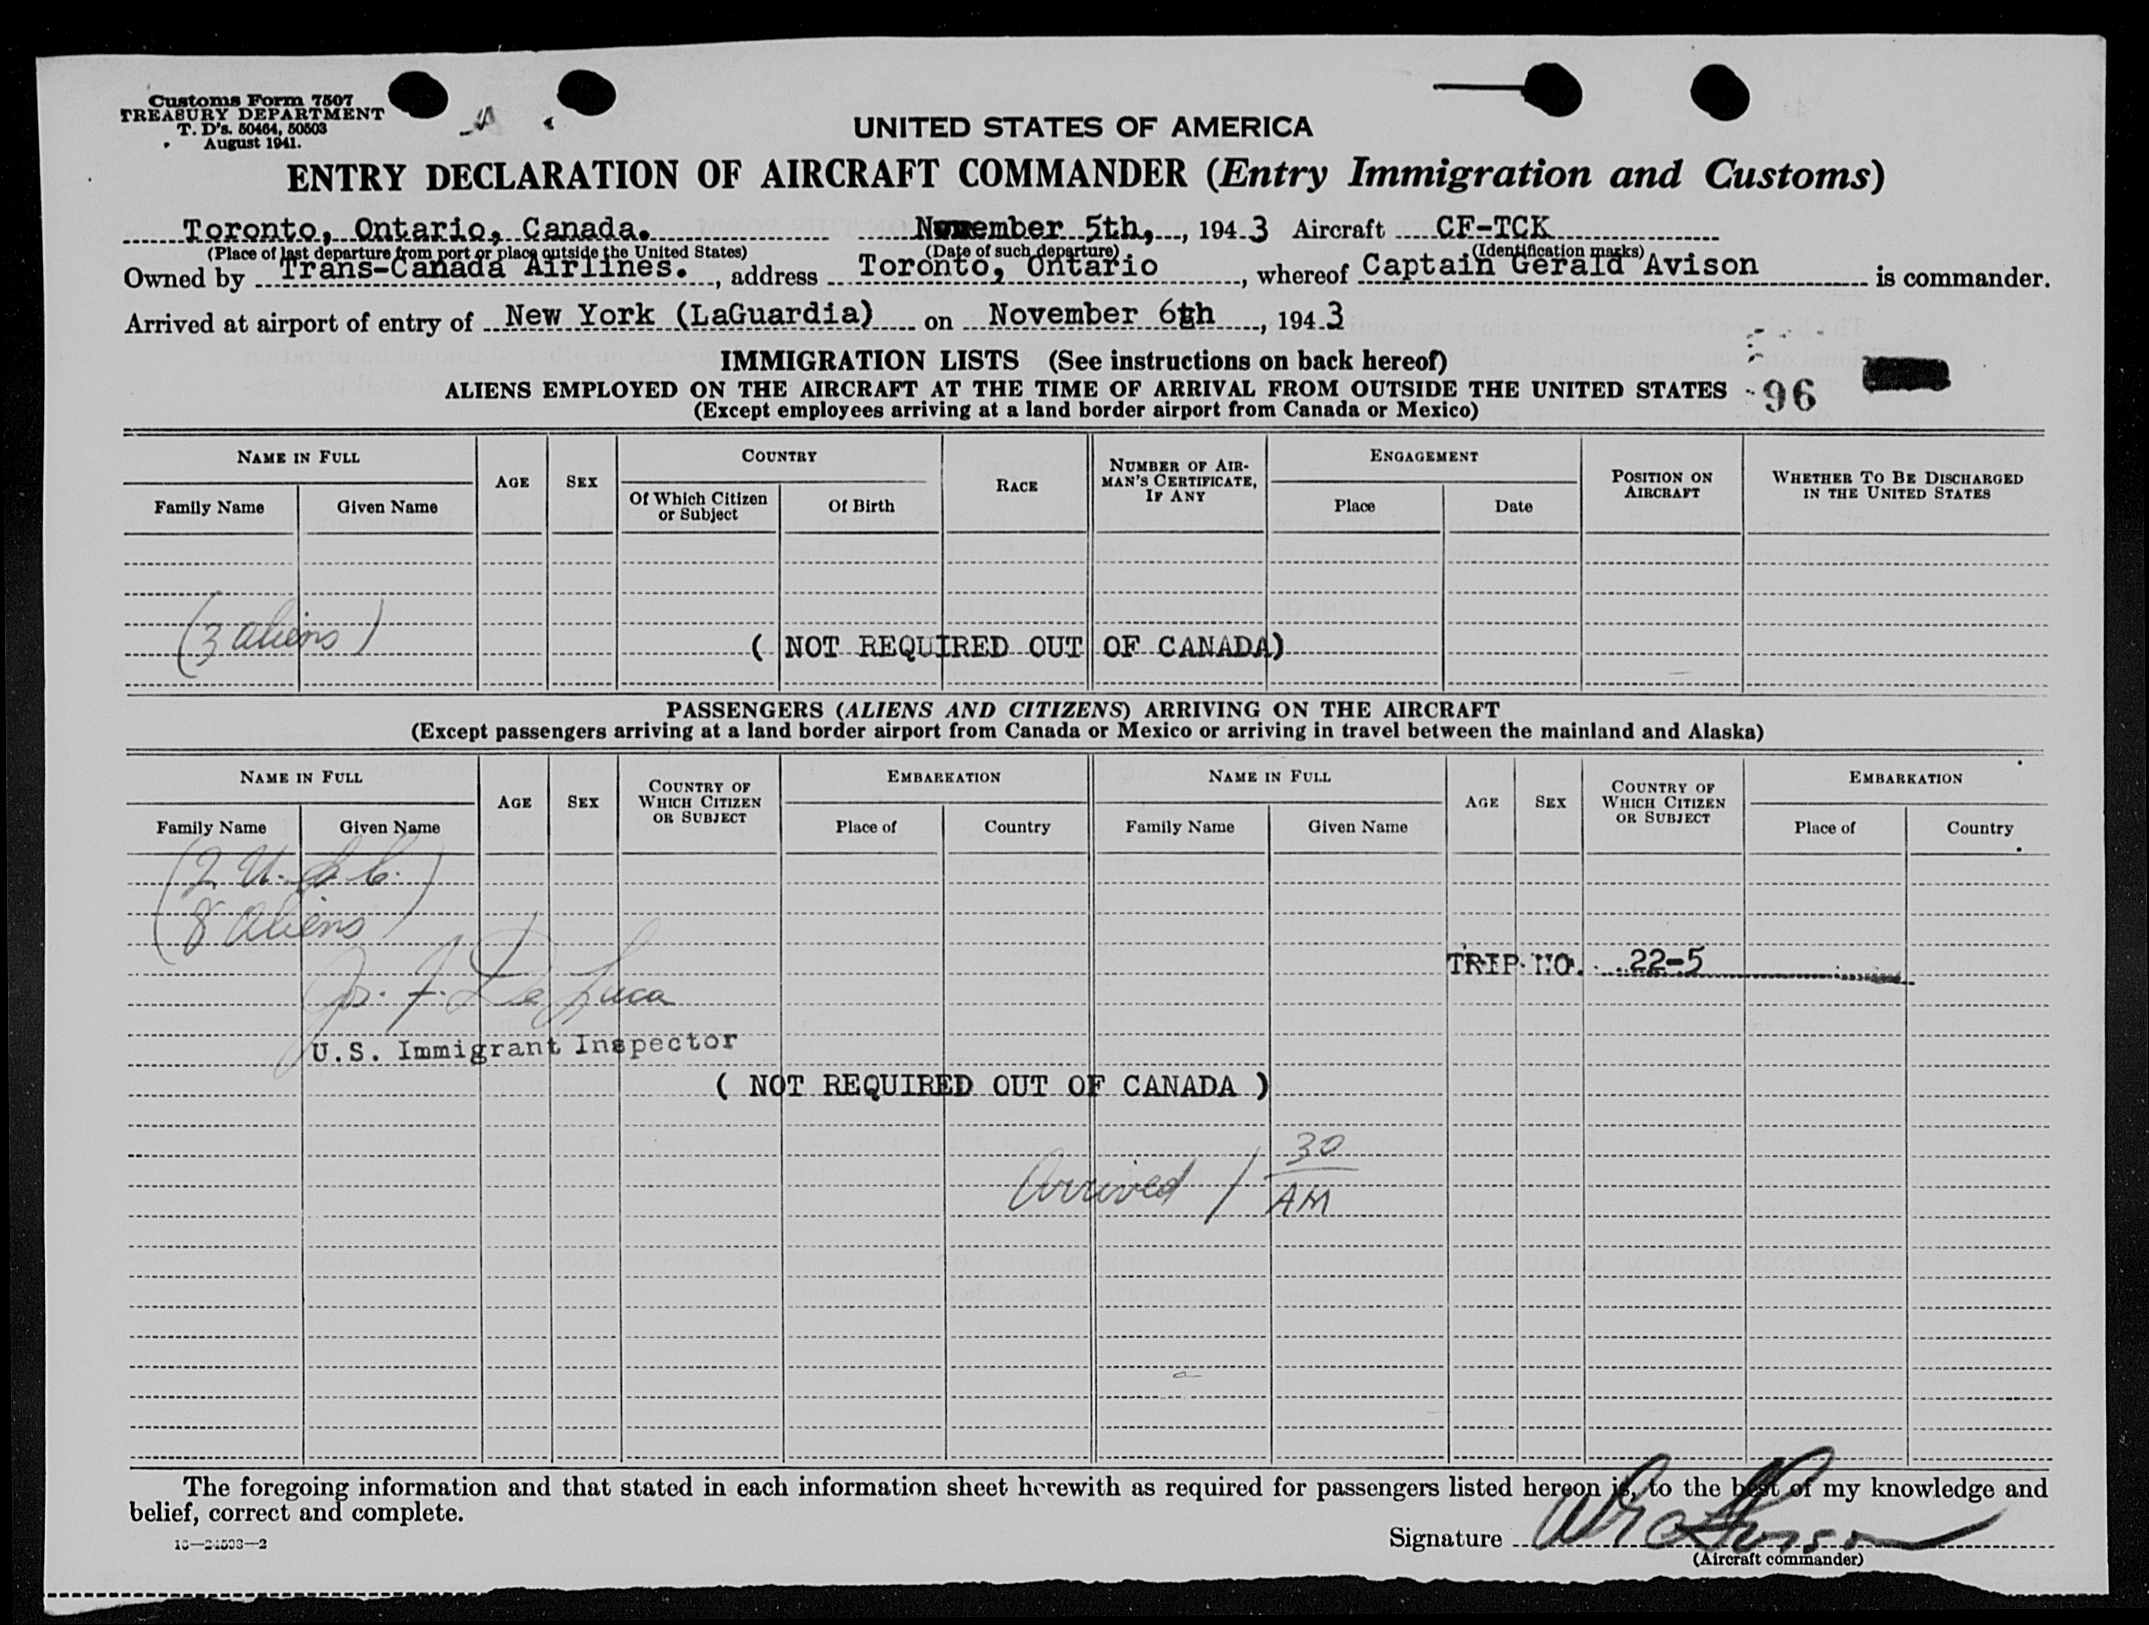 Customs Form 7507
TREASURY DEPARTMENT
T. D's. 50464, 50503
August 1941.
UNITED STATES OF AMERICA
ENTRY DECLARATION OF AIRCRAFT COMMANDER (Entry Immigration and Customs)
Toronto, Ontario, Canada. November 5th, , 1943 Aircraft CF-TCK
(Place of last departure from port or place outside the United States) (Date of such departure) (Identification marks)
Owned by Trans-Canada Airlines. , address Toronto, Ontario , whereof Captain Gerald Avison is commander.
Arrived at airport of entry of New York (LaGuardia) on November 6th , 1943
IMMIGRATION LISTS (See instructions on back hereof)
ALIENS EMPLOYED ON THE AIRCRAFT AT THE TIME OF ARRIVAL FROM OUTSIDE THE UNITED STATES 96
(Except employees arriving at a land border airport from Canada or Mexico)
NAME IN FULL AGE SEX COUNTRY RACE NUMBER OF AIRMAN'S CERTIFICATE, IF ANY ENGAGEMENT POSITION ON AIRCRAFT WHETHER TO BE DISCHARGED IN THE UNITED STATES
Family Name Given Name Of Which Citizen or Subject Of Birth Place Date
(3 aliens) ( NOT REQUIRED OUT OF CANADA)
PASSENGERS (ALIENS AND CITIZENS) ARRIVING ON THE AIRCRAFT
(Except passengers arriving at a land border airport from Canada or Mexico or arriving in travel between the mainland and Alaska)
NAME IN FULL AGE SEX COUNTRY OF WHICH CITIZEN OR SUBJECT EMBARKATION NAME IN FULL AGE SEX COUNTRY OF WHICH CITIZEN OR SUBJECT EMBARKATION
Family Name Given Name Place of Country Family Name Given Name Place of Country
(2 U.S.C.)
(8 aliens)
TRIP NO. 22-5
Jos. F. De Luca
U.S. Immigrant Inspector
( NOT REQUIRED OUT OF CANADA )
Arrived 1 30 AM
The foregoing information and that stated in each information sheet herewith as required for passengers listed hereon is, to the best of my knowledge and
belief, correct and complete.
Signature
(Aircraft commander)